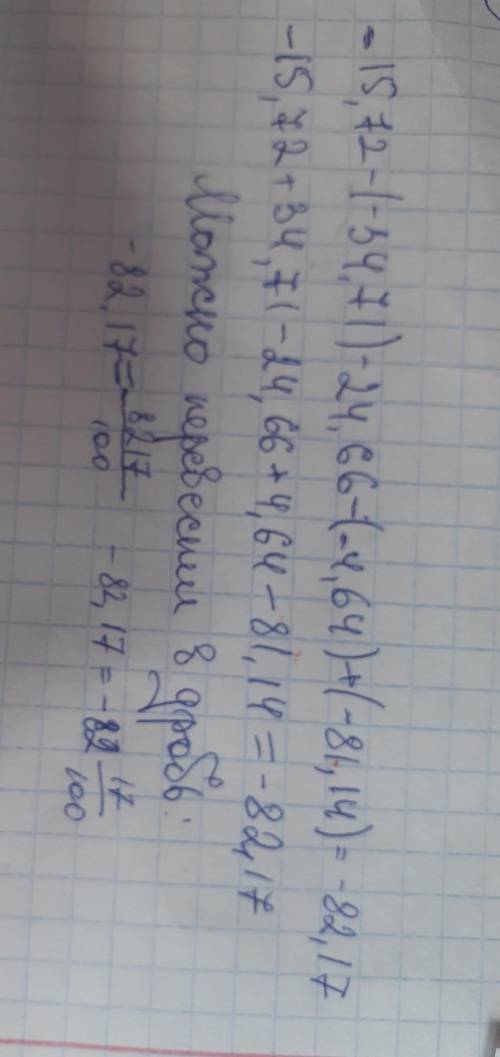 -15,72-(-34,71)-24,66-(-4,64)+(-81,14)=-82,17
-15,72+34,71-24,66+4,64-81,14=-82,17
Можно перевести в дробь:
-82,17=-8217/100 -82,17=-82 17/100